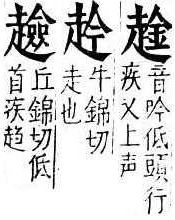 趛
音吟低頭行
疾又上声
赺
牛錦切
走也
丘錦切低
首疾趋